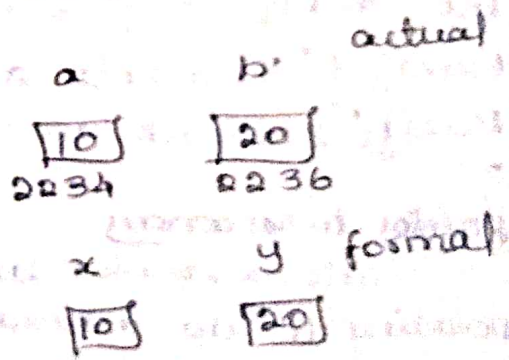 actual
a b
10 20
2234 2236
x y formal
10 20